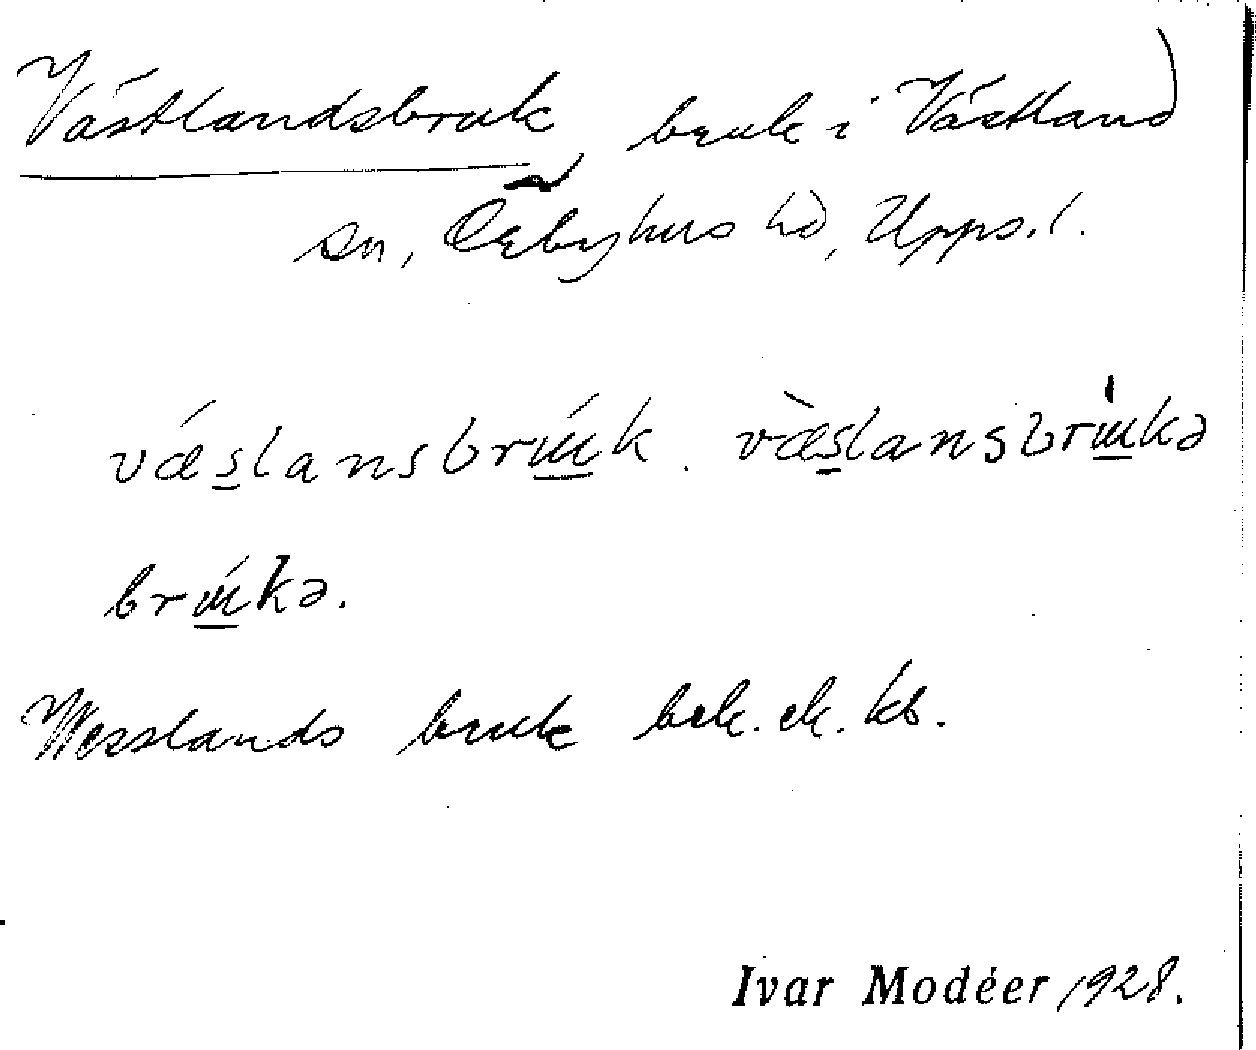 Västlandsbruk, bruk i Västland
sn, Örbyhus hd, Upps. l.
vǽslansbrɯ́k. væ̀slansbrɯkə
brɯ́kə.
Wesslands bruk bek. ek. kb.
Ivar Modéer 1928.